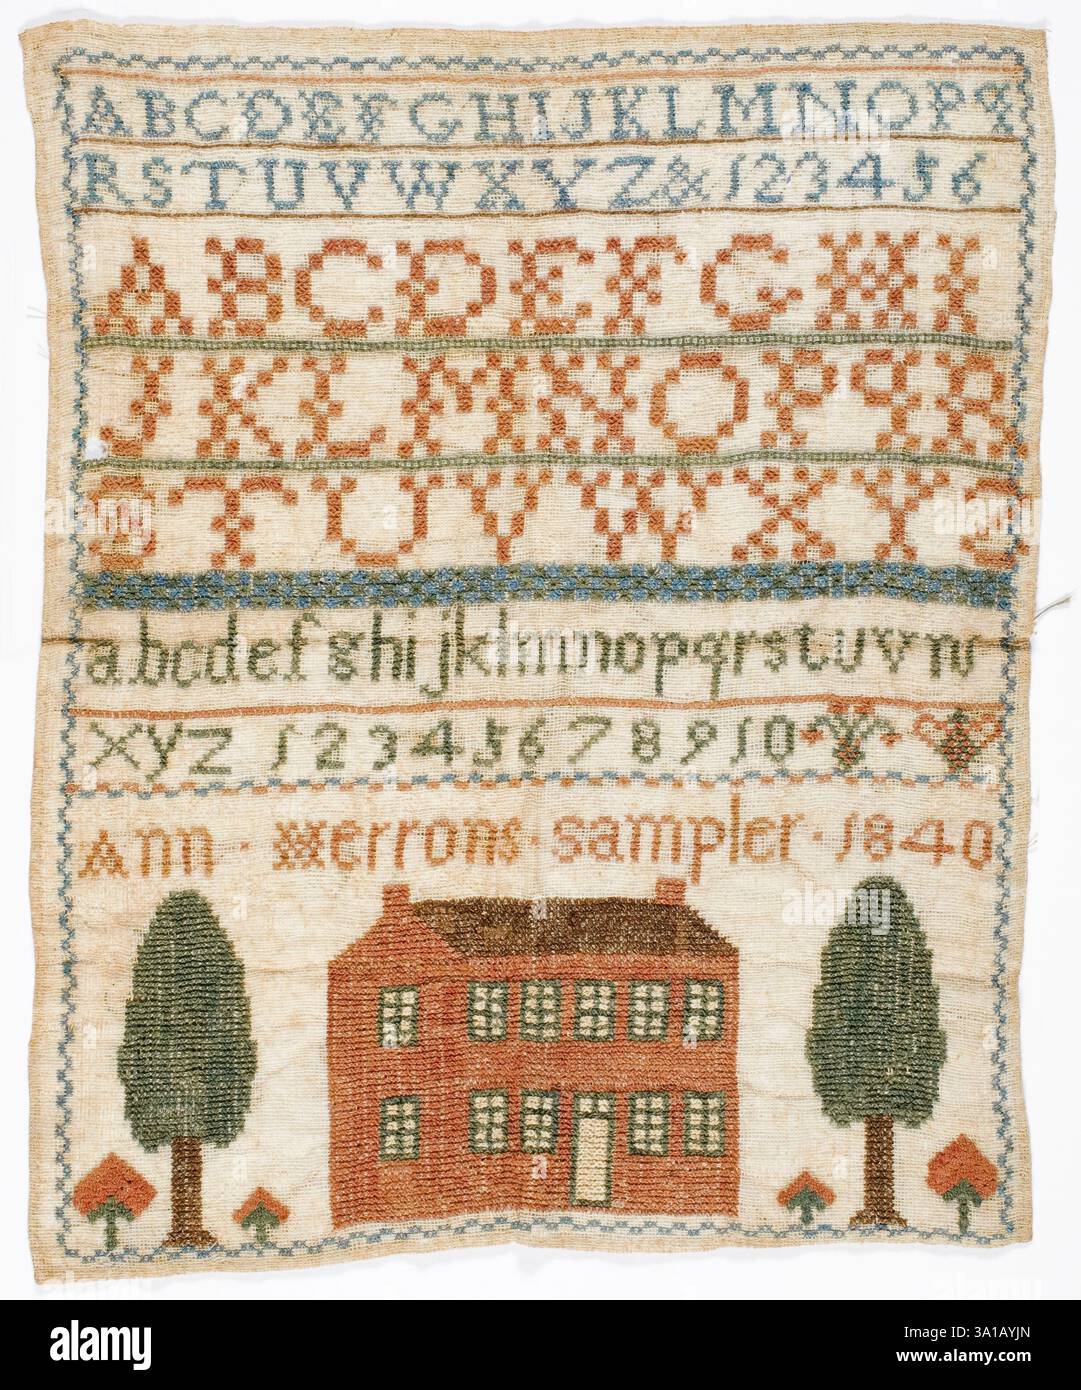 ABCDEFGHIJKLMNOPQ
RSTUVWXYZ& 123456
ABCDEFGHI
JKLMNOPQR
STUVWXYZ
abcdefghijklmnopqrstuvw
xyz 12345678910
Ann · Werrons · sampler · 1840
alamy
Image ID: 3A1AYJN
www.alamy.com